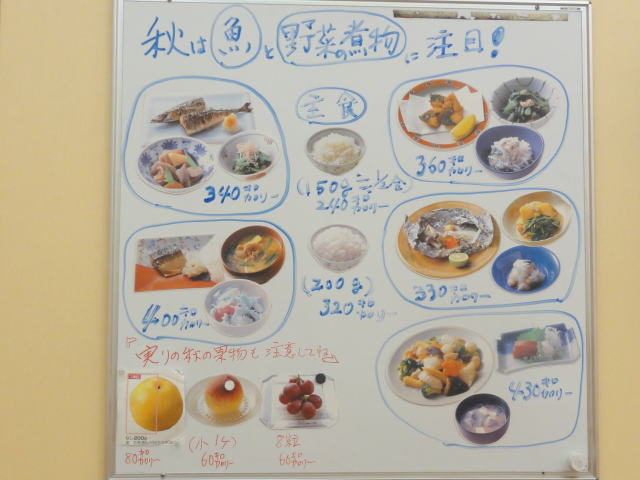 秋は魚と野菜の煮物に注目!
主食
340キロカロリー
(150g
240キロカロリー
360キロカロリー
400キロカロリー
(200g)
320キロカロリー
330キロカロリー
430キロカロリー
『実りの秋の果物も注意してね』
なし200g
80キロカロリー
(小1ケ)
60キロカロリー
8粒
66キロカロリー